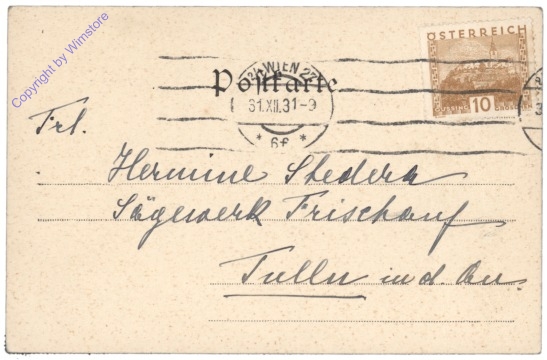 Copyright by Wimstore
ÖSTERREICH
WIEN 27
Postkarte
31.XII.31-9
* 6f *
GÜSSING 10 GROSCHEN
Frl.
Hermine Stedera
Sägewerk Frischauf
Tulln a. d. Au.